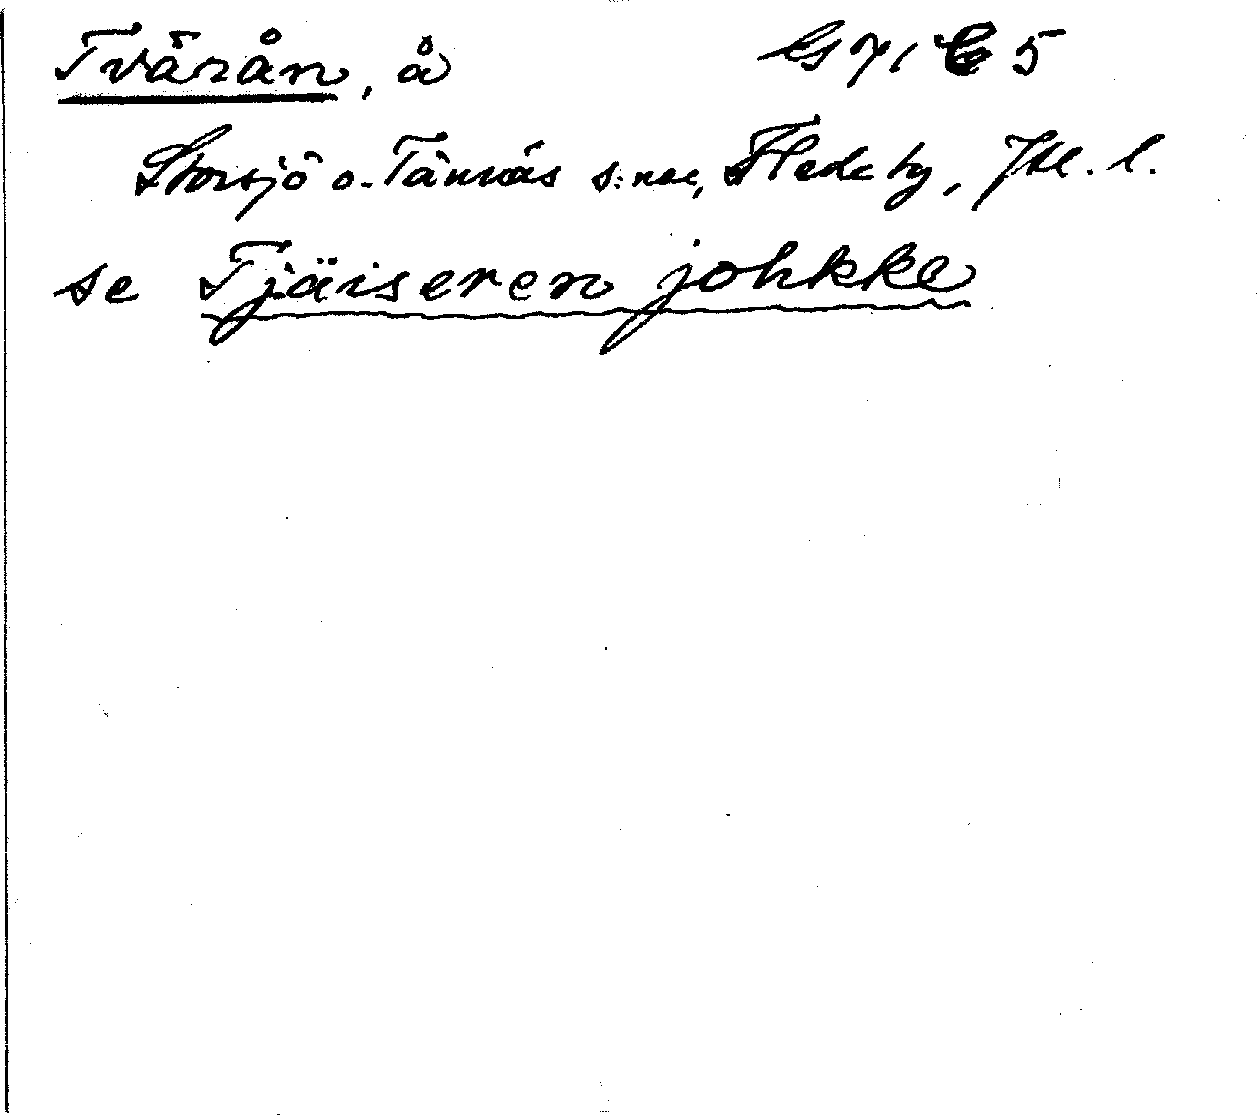 Tvärån, å GS 71 C 5
Storsjö o. Tännäs s:nar, Hede tg, Jtl. l.
se Tjäiseren johkke